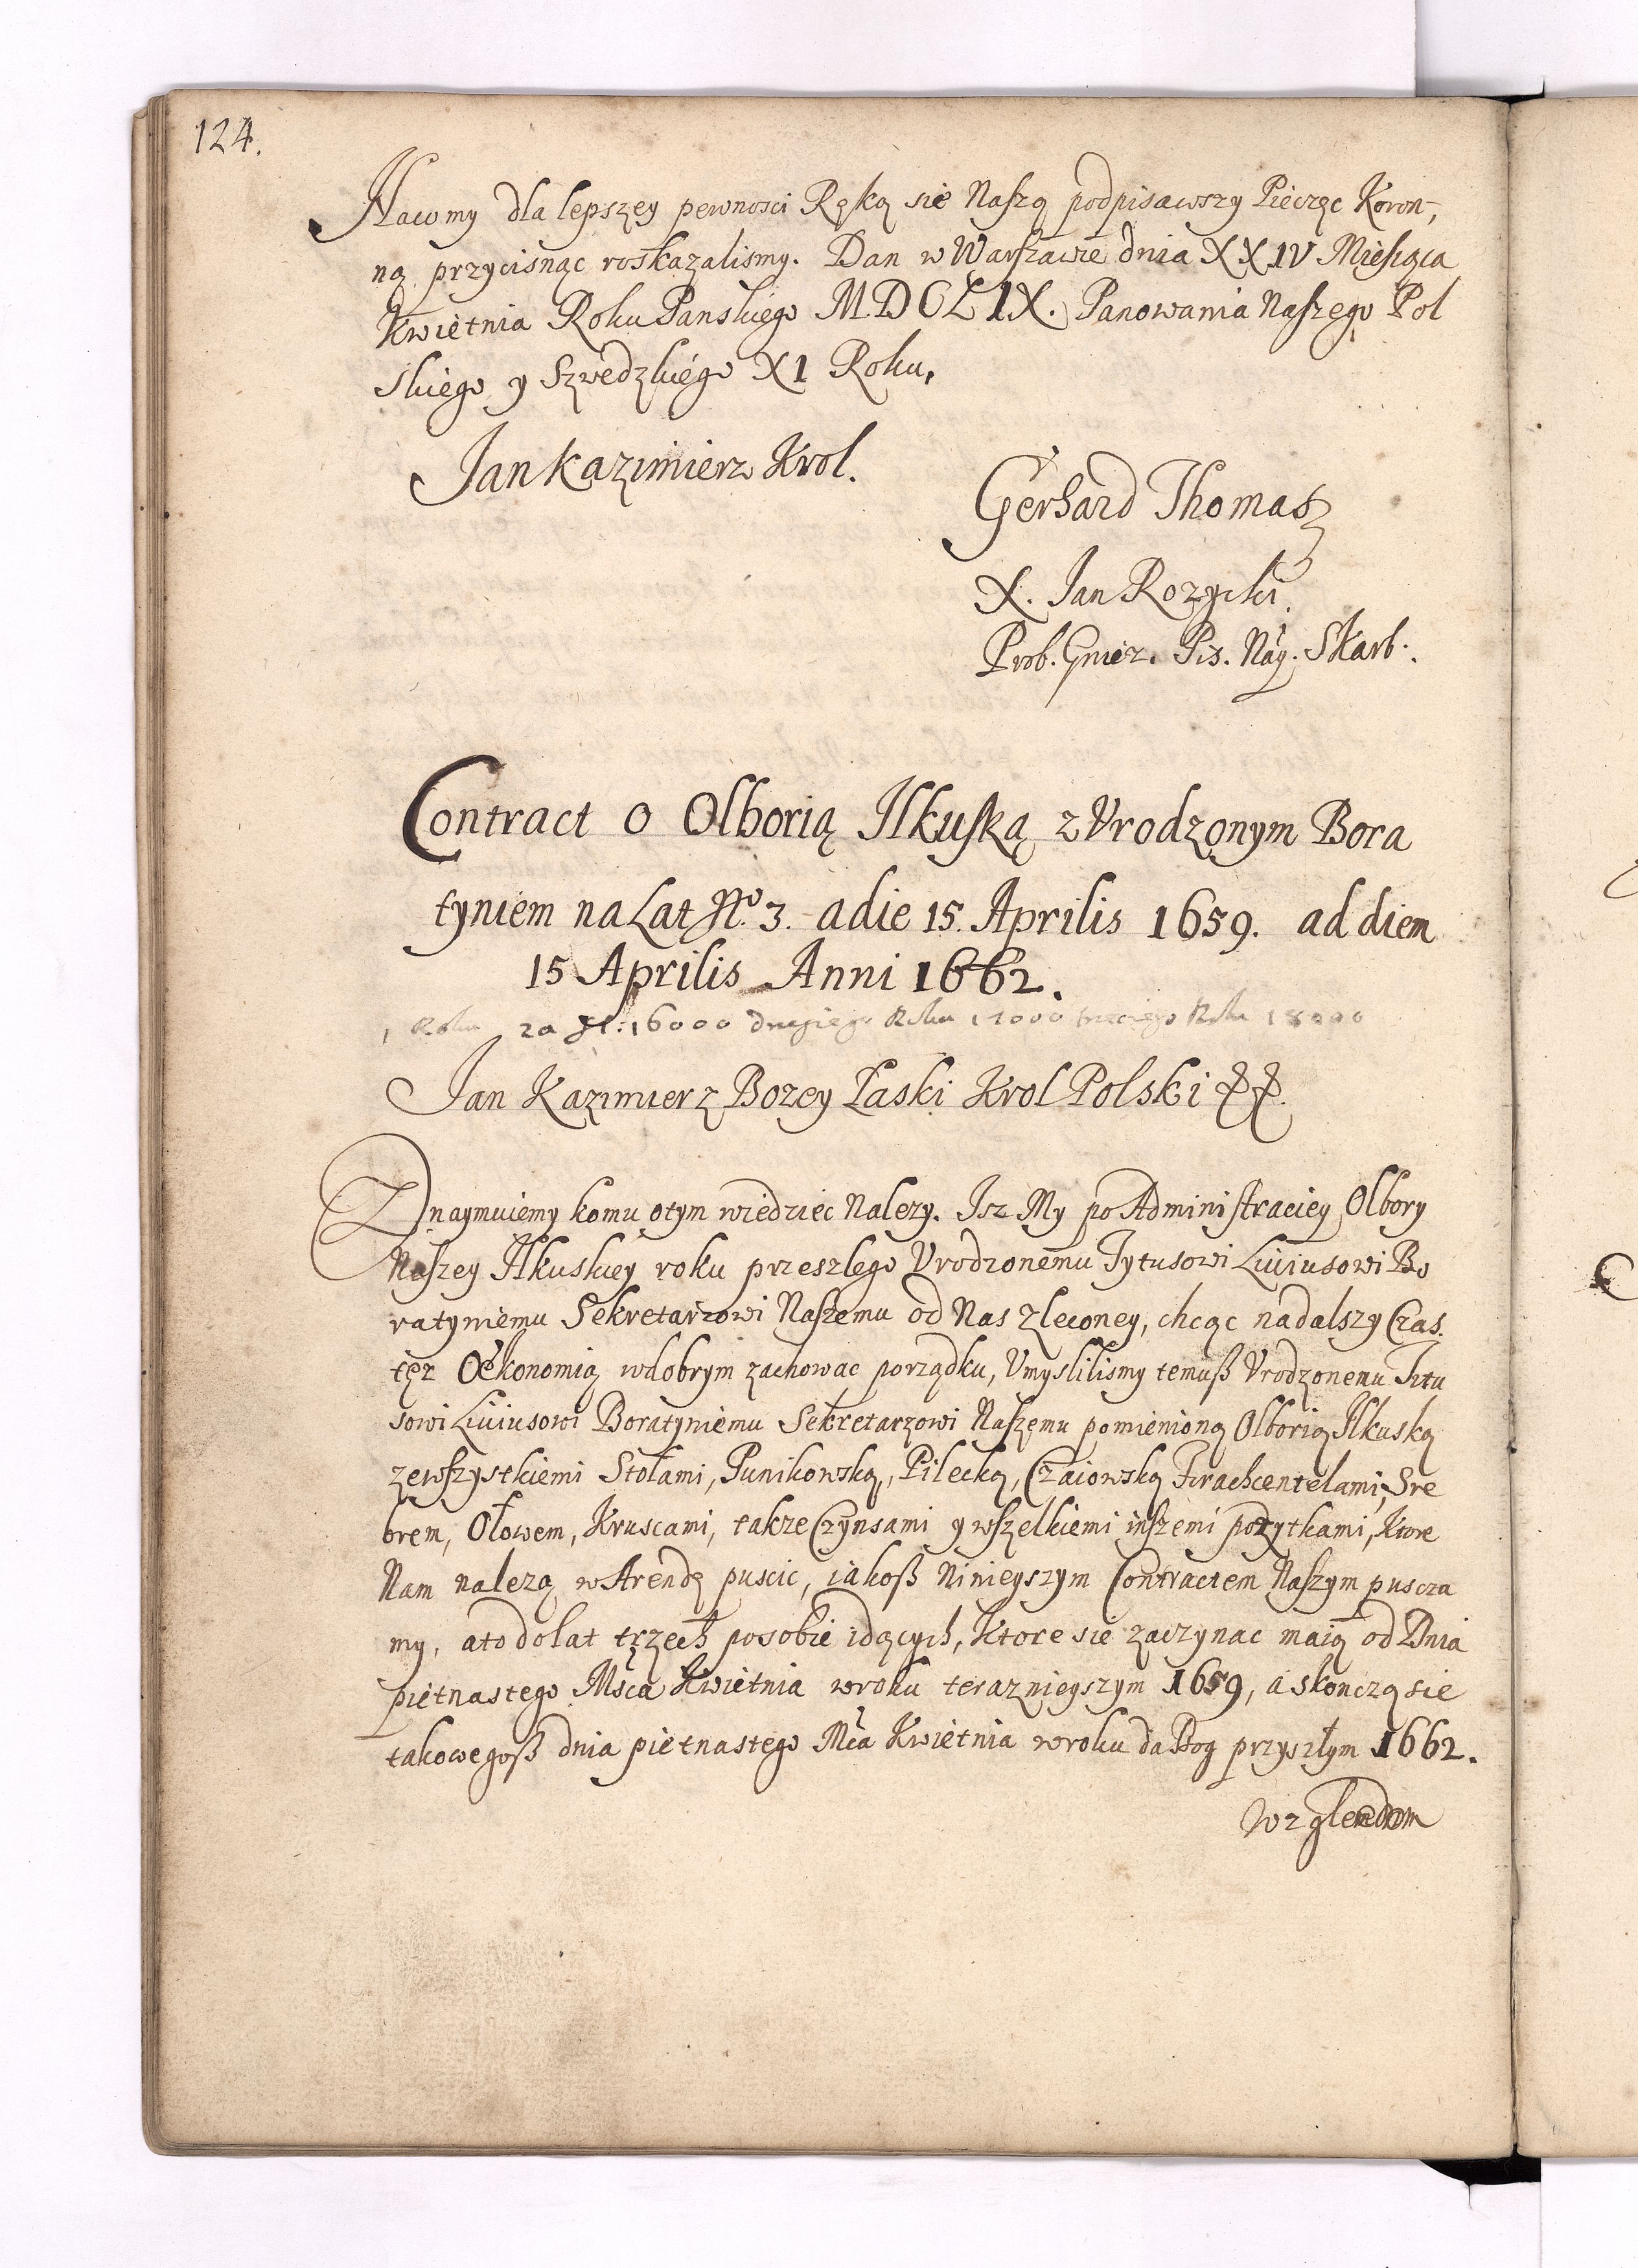 124.
Na co my dla lepszey pewnosci Ręką sie Naszą podpisawszy Pieczęc Koron-
ną przycisnąc roskazalismy. Dan w Warszawie dnia XXIV Miesiąca
Kwietnia Roku Panskiego MDCLIX. Panowania Naszego Pol
skiego y Szwedzkiego XI Roku.
Jan Kazimierz Krol.
Gerhard Thomas
X. Jan Rozycki
Prob. Gniez. Pis. Nay. Skarb.
Contract o Olborią Ilkuską z Vrodzonym Bora
tyniem na Lat No. 3. a die 15. Aprilis 1659. ad diem
15 Aprilis Anni 1662.
1 Roku za fl: 16000 drugiego Roku 17000 trzeciego Roku 18000
Jan Kazimierz Bozey Łaski Krol Polski
Znaymuiemy komu o tym wiedziec Nalezy. Isz My po Administraciey Olbory
Naszey Ilkuskiey roku przeszlego Vrodzonemu Tytusowi Liuiusowi Bo
ratyniemu Sekretarzowi Naszemu od Nas zleconey, chcąc na dalszy Czas
tęz Oekonomią w dobrym zachowac porządku, Vmyslilismy temuß Vrodzonemu Titu
sowi Liuiusowi Boratyniemu Sekretarzowi Naszemu pomienioną Olborią Ilkuską
ze wszystkiemi Stołami, Punikowską, Pilecką, Czaiowską Frachcentelami, Sre
brem, Ołowem, Kruscami, takze Czynsami y wszelkiemi inszemi pozytkami, Ktore
Nam nalezą w Arendę puscic, iakoß Ninieyszym Contractem Naszym puscza
my, a to do lat trzech po sobie idących, Ktore sie zaczynac maią od Dnia
piętnastego Msca Kwietnia w roku teraznieyszym 1659, a skonczą sie
takowegoß dnia piętnastego Mca Kwietnia w roku da Bog przyszłym 1662.
Wzglendem